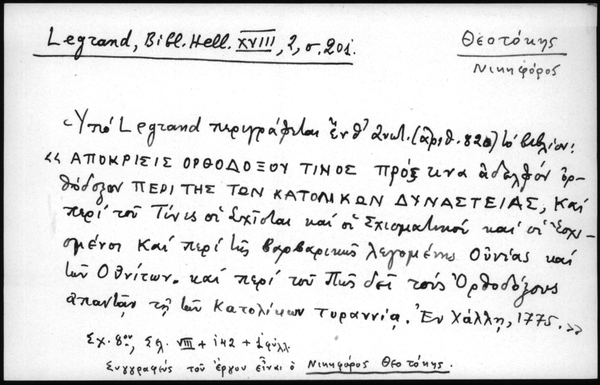 Legrand, Bibl. Hell. XVIII, 2, σ. 201.
Θεοτόκης
Νικηφόρος
Ὑπό Legrand περιγράφεται (ἀριθ. 820) τό βιβλίον:
« ΑΠΟΚΡΙΣΙΣ ΟΡΘΟΔΟΞΟΥ ΤΙΝΟΣ πρός τινα ἀδελφόν ὀρ-
θόδοξον ΠΕΡΙ ΤΗΣ ΤΩΝ ΚΑΤΟΛΙΚΩΝ ΔΥΝΑΣΤΕΙΑΣ, Καί
περί τοῦ Τίνες οἱ Σχῖσται καί οἱ Σχισματικοί καί οἱ Ἐσχι-
σμένοι Καί περί τῆς βαρβαρικῆς λεγομένης Οὐνίας καί
τῶν Οὐνίτων. καί περί τοῦ Πῶς δεῖ τούς Ὀρθοδόξους
ἀπαντᾷν τῇ τῶν Κατολίκων τυραννίᾳ. Ἐν Χάλλῃ, 1775. »
Σχ. 8ον, Σελ. VIII + 142 + 1 φύλλ.
Συγγραφεύς τοῦ ἔργου εἶναι ὁ Νικηφόρος Θεοτόκης.